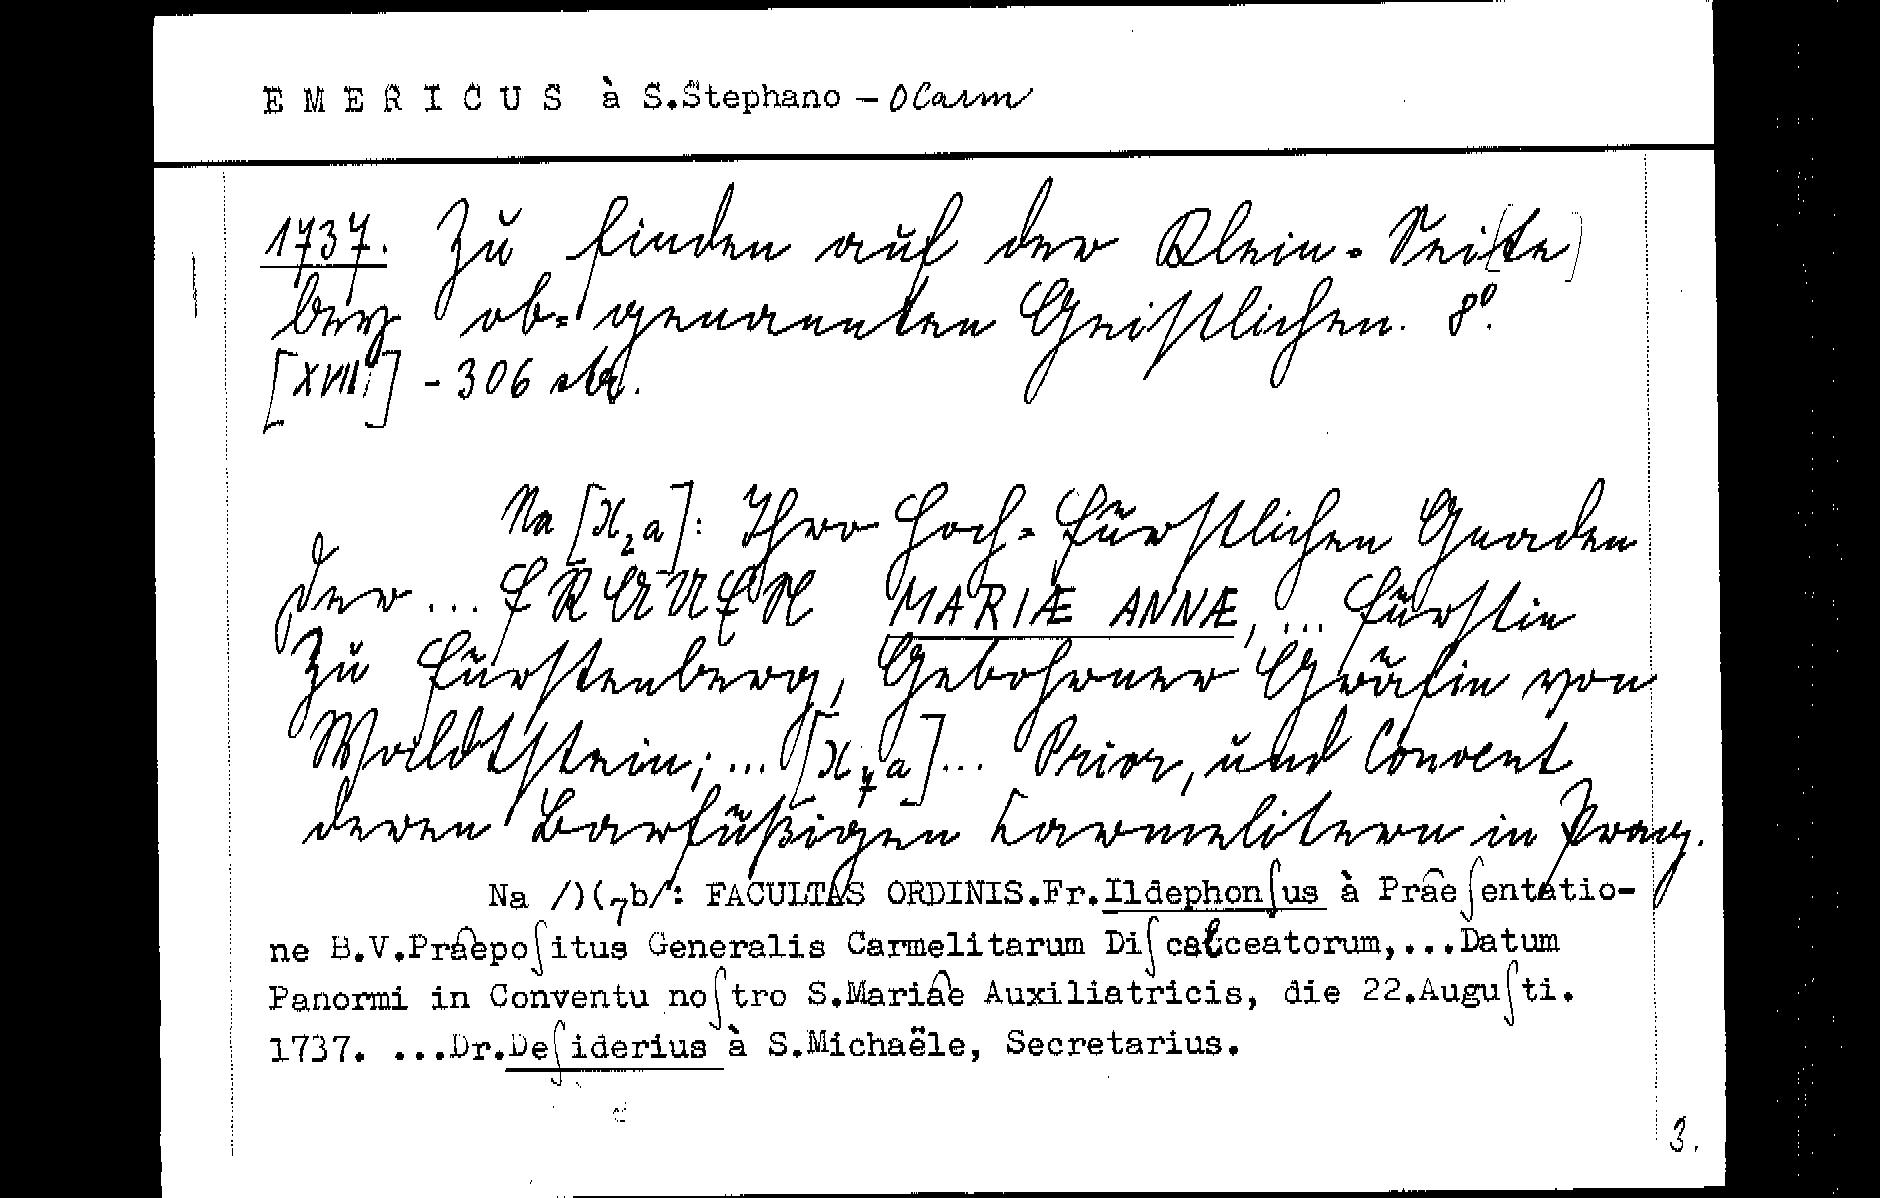 E M E R I C U S à S.Stephano – OCarm
1737. Zu finden auf der Klein-Sei[te]
bey ob-genannten Geistlichen. 8°.
[XVIII] - 306 str.
Na [)(2a]: Ihro Hoch-Fürstlichen Gnaden
Der ... FRAUEN MARIÆ ANNÆ, ... Fürstin
Zu Fürstenberg, Gebohrner Gräfin von
Waldtstein; ... [)(7a] ... Prior, und Convent
deren Barfüßigen Carmelitern in Prag.
Na /)(7b/: FACULTAS ORDINIS.Fr.Ildephonſus à Praeſentatio-
ne B.V.Praepoſitus Generalis Carmelitarum Diſcalceatorum,...Datum
Panormi in Conventu noſtro S.Mariae Auxiliatricis, die 22.Auguſti.
1737. ...Dr.Deſiderius à S.Michaële, Secretarius.
3.